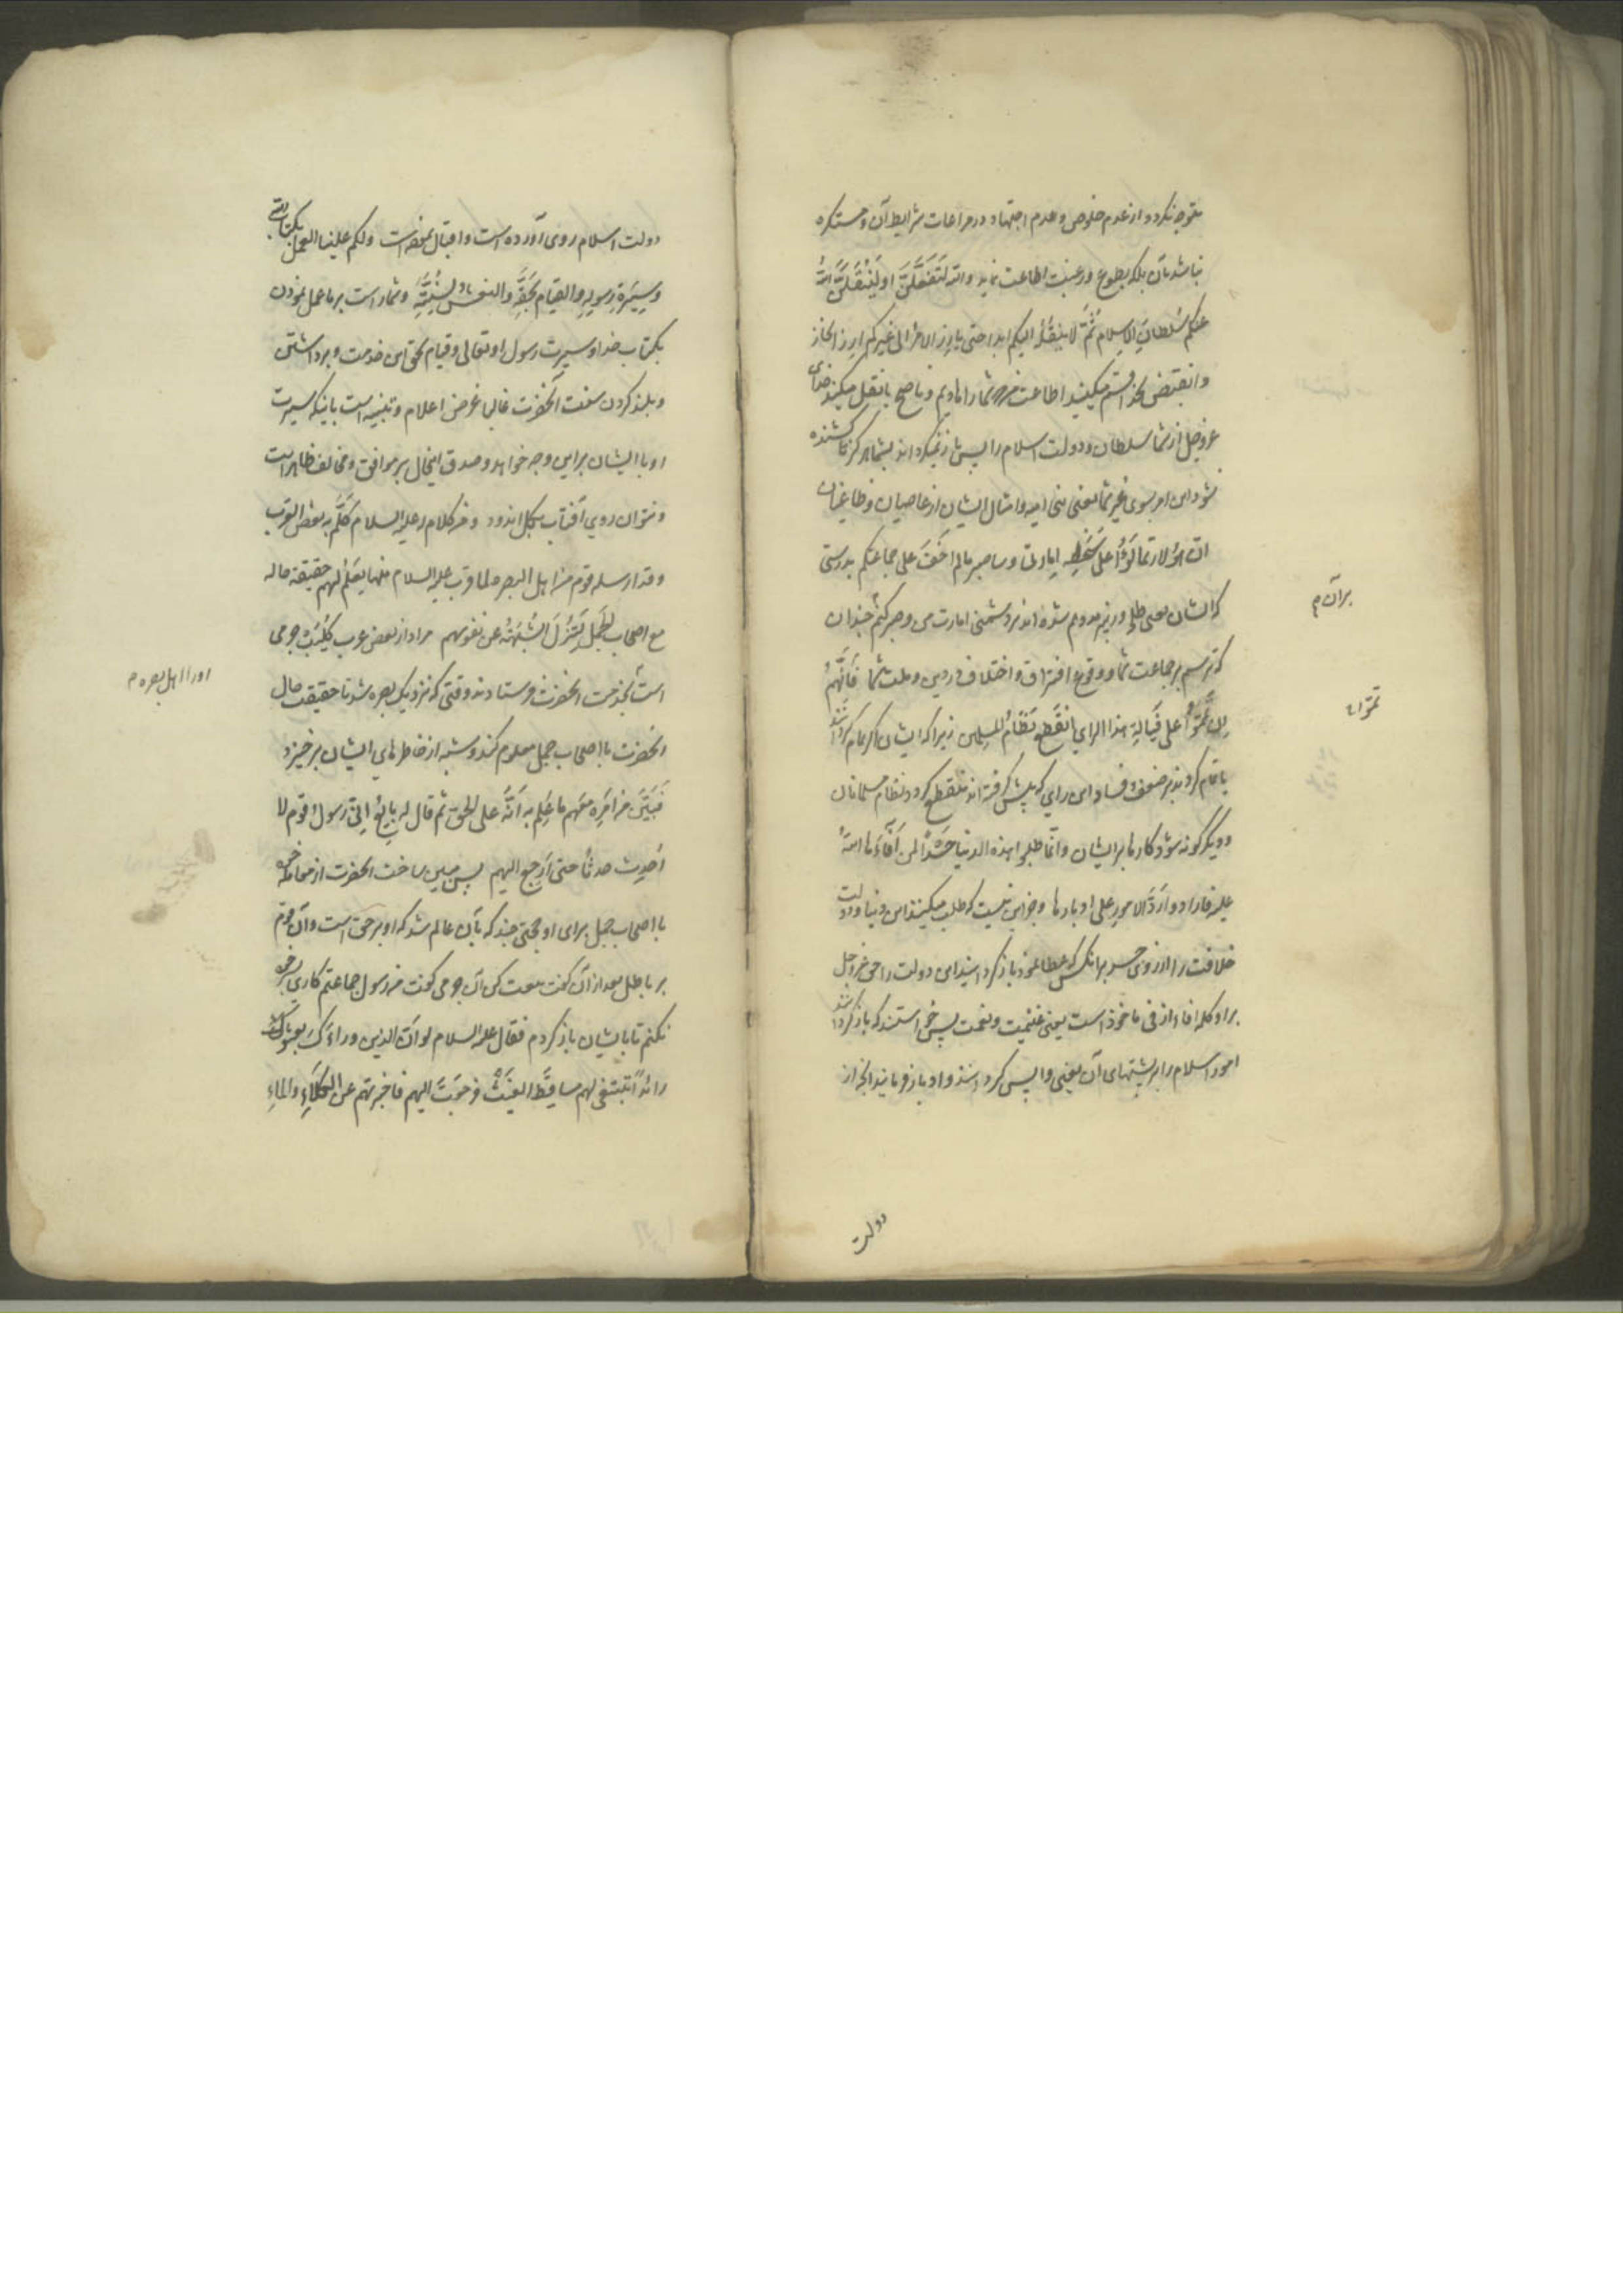 متوجه نکردد از عدم خلوص و عدم اجتهاد در مراعات شرایط آن و مستکره
نباشد بآن بلکه بطوع و رغبت اطاعت نماید والله لتفعلن او لینقلن الله
عنکم سلطان الاسلام ثم لا ینقله الیکم ابدا حتی یارز الامر الی غیرکم ارز انحاز
وانقبض بخدا قسم میکنید اطاعت من شمارا هادیم و ناصح یا نقل میکند خدای
عزوجل از شما سلطان و دولت اسلام را پیش باز نمیکرداند بشما هرکز تا کشیده
شود این امر بسوی غیر شما یعنی بنی امیه و امثال ایشان از عاصیان و طاغیان
ان هؤلاء قد تمالؤا علی سخطه امارتی و ساصبر مالم اخف علی جماعتکم بدرستی
که ایشان معین و هم شده اند بر دشمنی امارت من و صبر کنم چندان
که نترسم بر جماعت شما و وقوع افتراق و اختلاف در دین و ملت شما فانهم
ان تمموا علی فیالة هذا الرای انقطع نظام المسلمین زیرا که ایشان اکر تمام کردانند
یا تمام کردند بر ضعف و فساد این رای که پیش کرفته اند منقطع کردد نظام مسلمانان
و دیکرکونه شود کارها بر ایشان وانما طلبوا هذه الدنیا حسدا لمن افاءها الله
علیه فارادوا رد الامور علی ادبارها و جز این نیست که طلب میکنند این دنیا و دولت
خلافت را از روی حسد بر انکس که عطا نمود باز کردانیدن این دولت را حق عزوجل
براو کلمه افاء از فی ماخوذ است یعنی غنیمت و نعمت پس خواستند که باز کردانند
امور اسلام را بر پشتهای آن یعنی واپس کردانند و او باز فرمانید الجزاز
برآن م
تمموا
دولت
دولت اسلام روی آورده است و اقبال نموده است ولکم علینا العمل بکتاب الله
وسیرة رسوله والقیام بحقه والنعش لسنته و شمار است بر ما عمل نمودن
بکتاب خدا و سیرت رسول او تعالی و قیام بحق این خدمت و برداشتن
و بلند کردن سنت آنحضرت غالبا غرض اعلام و تنبیه است باینکه سیرت
او با ایشان براین وجه خواهد و صدق اینحال بر موافق و مخالف ظاهر است
و نتوان روی آفتاب بکل اندود و من کلام له علیه السلام کلم به بعض العرب
وقد ارسله قوم من اهل البصرة لما قرب علیه السلام منها یعلم لهم حقیقة حاله
مع اصحاب الجمل لتزول الشبهة عن نفوسهم مراد از بعض عرب کلیب جرمی
است بخدمت آنحضرت فرستادند وقتی که نزدیک بصره شد تا حقیقت حال
آنحضرت با اصحاب جمل معلوم کند و شبه از خاطرهای ایشان برخیزد
فبین من امره معهم ما علم به انه علی الحق ثم قال له بایع انی رسول قوم لا
احدث حدثا حتی ارجع الیهم پس مبین ساخت آنحضرت از معامله خود
با اصحاب جمل برای او حجتی چند که بآن عالم شد که او بر حق است و آن قوم
بر باطل بعد از آن کفت بیعت کن آن جرمی کفت من رسول جماعتم کاری بر خود
نکنم تا بایشان باز کردم فقال علیه السلام لو ان الذین وراءک بعثوک
رائدا تبتغی لهم مساقط الغیث فرجعت الیهم فاخبرتهم عن الکلاء والماء
اورا اهل بصره م